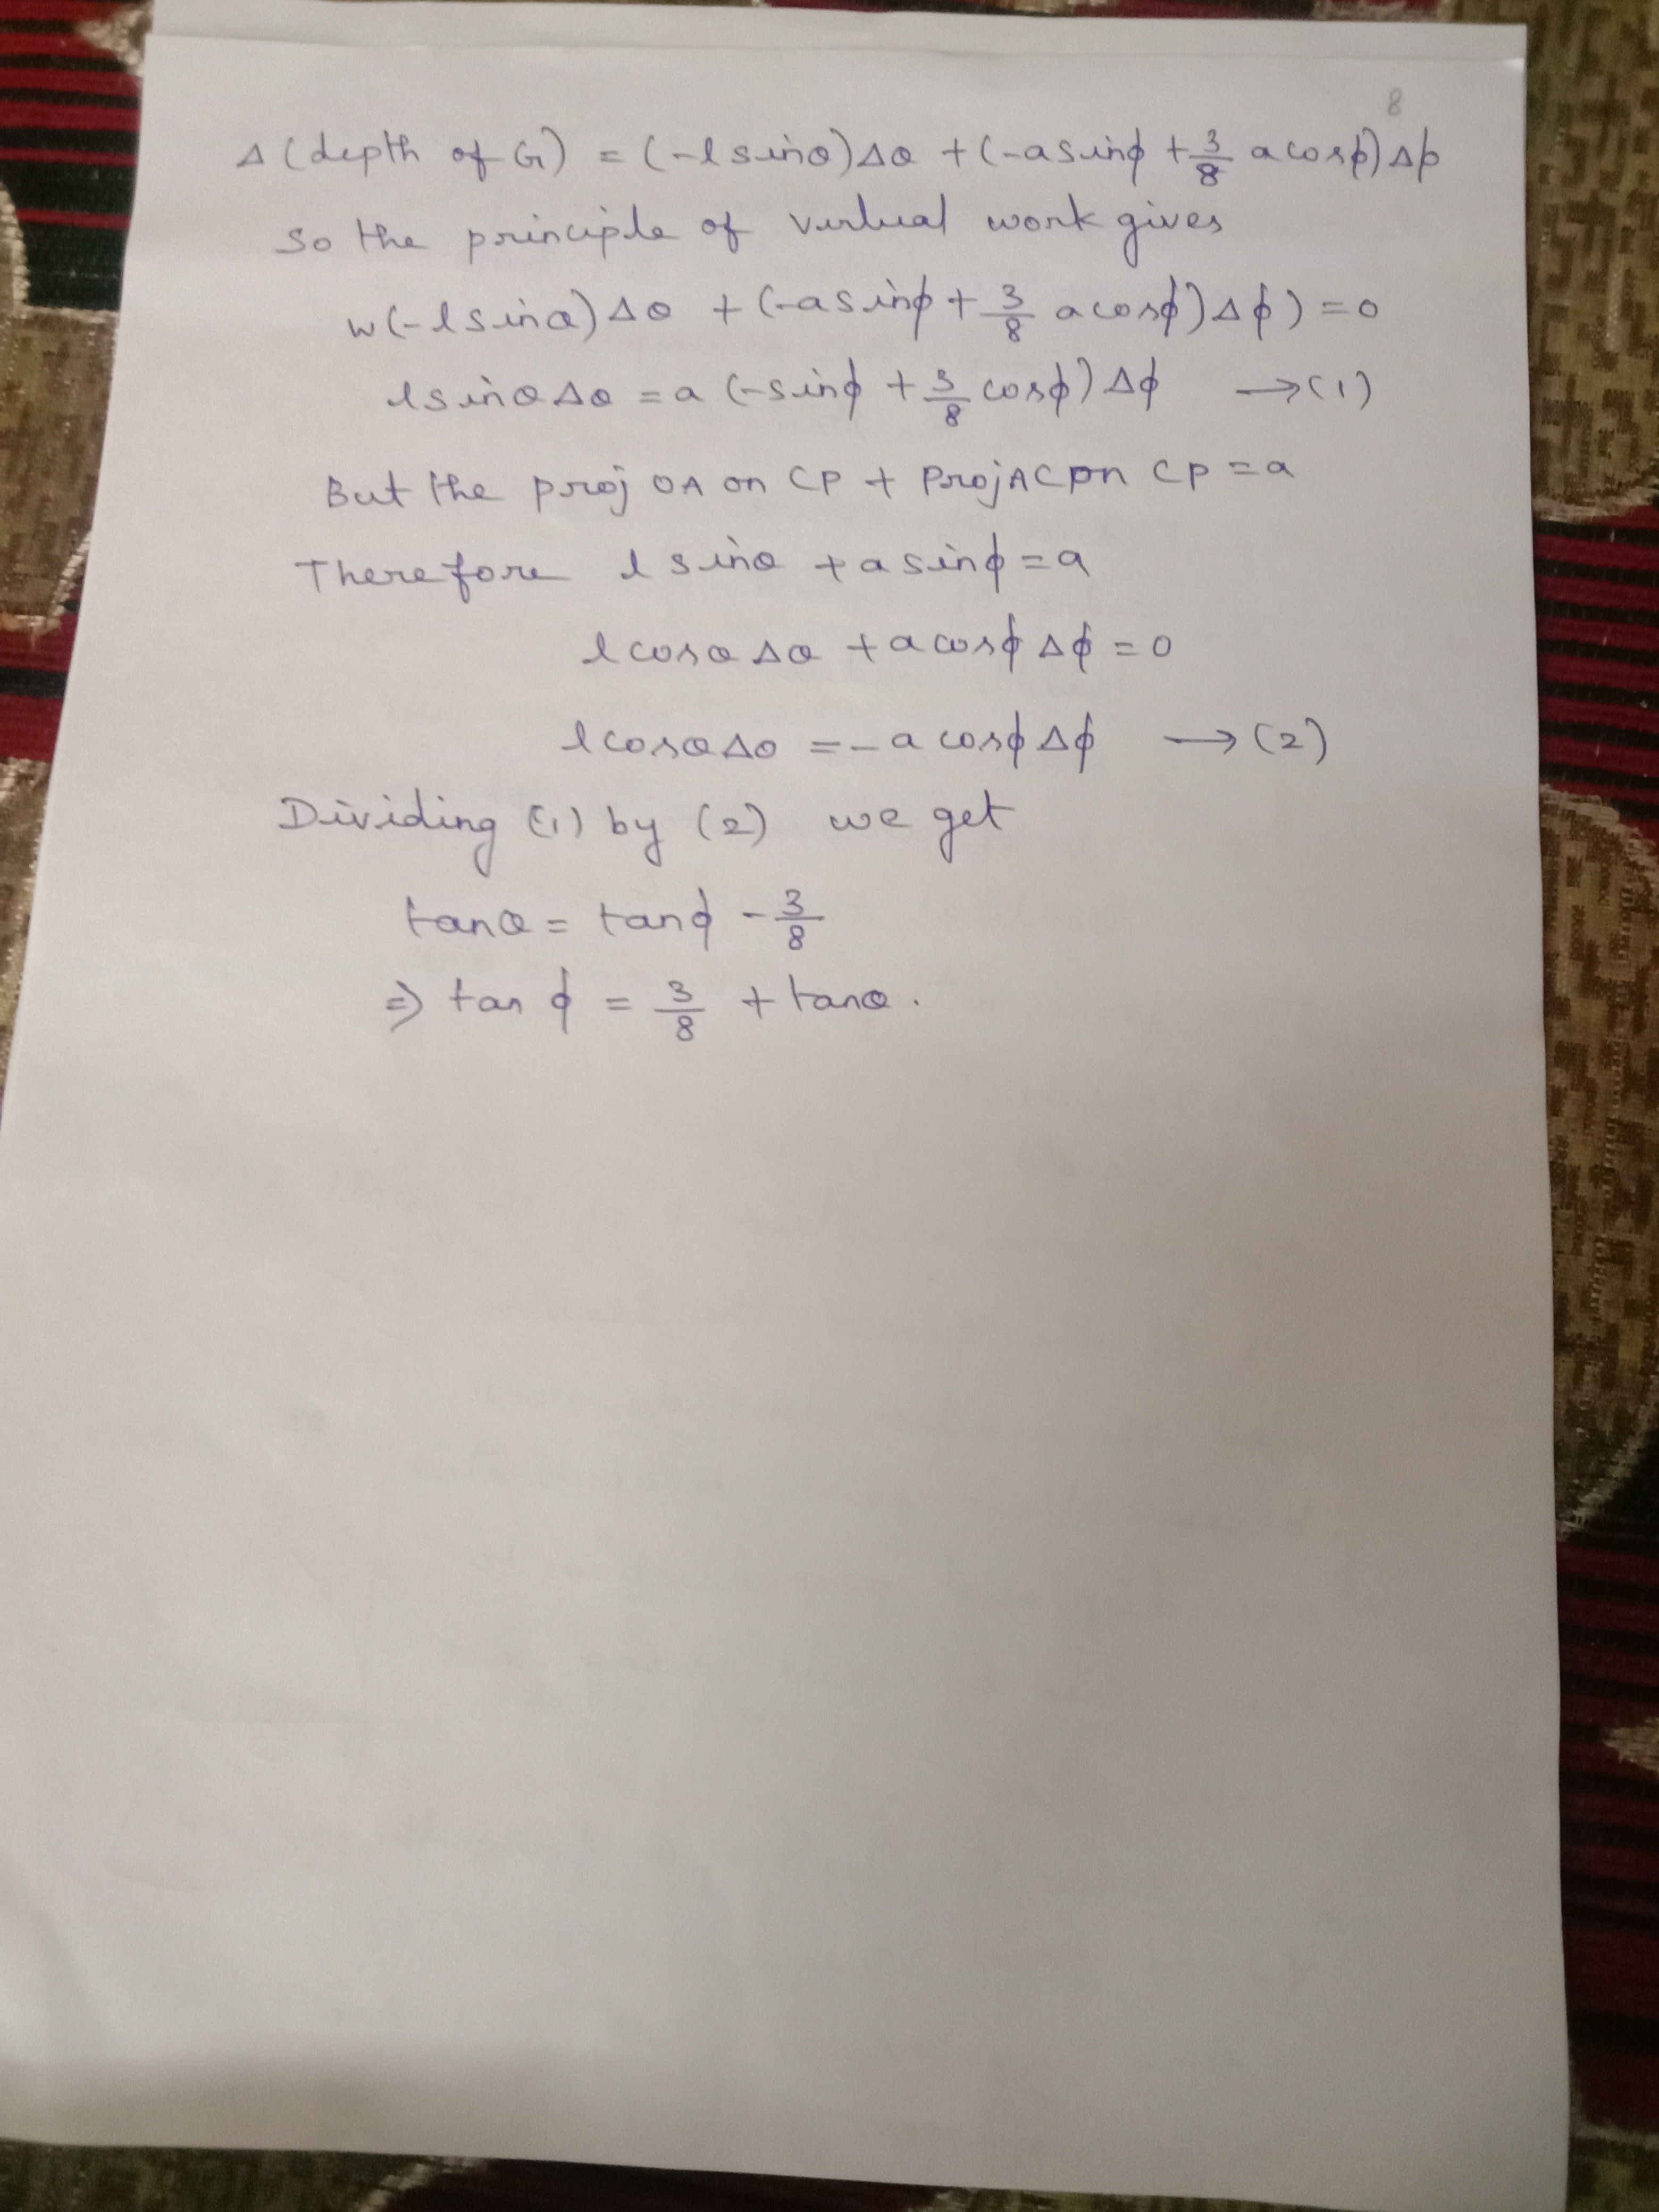 8
Δ(depth of G) = (-l sinθ)Δθ + (-a sinϕ + 3/8 a cosϕ)Δϕ
So the principle of virtual work gives
w(-l sinθ)Δθ + (-a sinϕ + 3/8 a cosϕ)Δϕ) = 0
l sinθ Δθ = a (-sinϕ + 3/8 cosϕ)Δϕ → (1)
But the proj OA on CP + Proj AC on CP = a
Therefore l sinθ + a sinϕ = a
l cosθ Δθ + a cosϕ Δϕ = 0
l cosθ Δθ = - a cosϕ Δϕ → (2)
Dividing (1) by (2) we get
tanθ = tanϕ - 3/8
⇒ tan ϕ = 3/8 + tanθ.